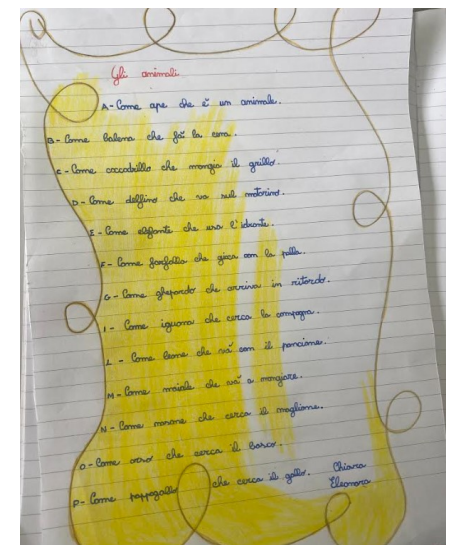 Gli animali
A - Come ape che è un animale.
B - Come balena che fà la cena.
C - Come coccodrillo che mangia il grillo.
D - Come delfino che va sul motorino.
E - Come elefante che usa l'idrante.
F - Come farfalla che gioca con la palla.
G - Come ghepardo che arriva in ritardo.
I - Come iguana che cerca la compagna.
L - Come leone che và con il pancione.
M - Come maiale che và a mangiare.
N - Come che cerca il maglione.
O - Come orso che cerca il
P - Come pappagallo che cerca il gallo. Chiara
Eleonora